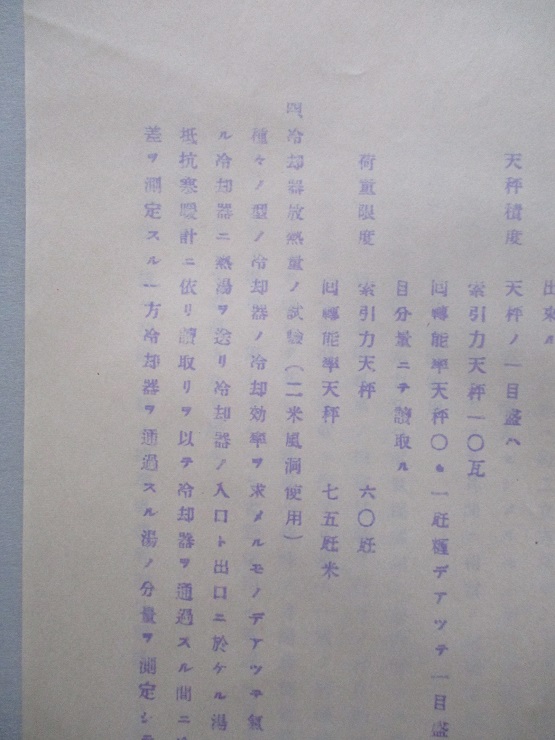 出來ル
天秤精度 天秤ノ一目盛ハ
索引力天秤一〇瓦
回轉能率天秤〇・一瓩糎デアツテ一目盛
自分量ニテ讀取ル
荷重限度 索引力天秤 六〇瓩
回轉能率天秤 七五瓩米
四、冷却器放熱量ノ試驗(二米風洞使用)
種々ノ型ノ冷却器ノ冷却効率ヲ求メルモノデアツテ氣
ル冷却器ニ熱湯ヲ送リ冷却器ノ入口ト出口ニ於ケル湯
抵抗寒暖計ニ依リ讀取リヲ以テ冷却器ヲ通過スル間ニ
差ヲ測定スル一方冷却器ヲ通過スル湯ノ分量ヲ測定シテ